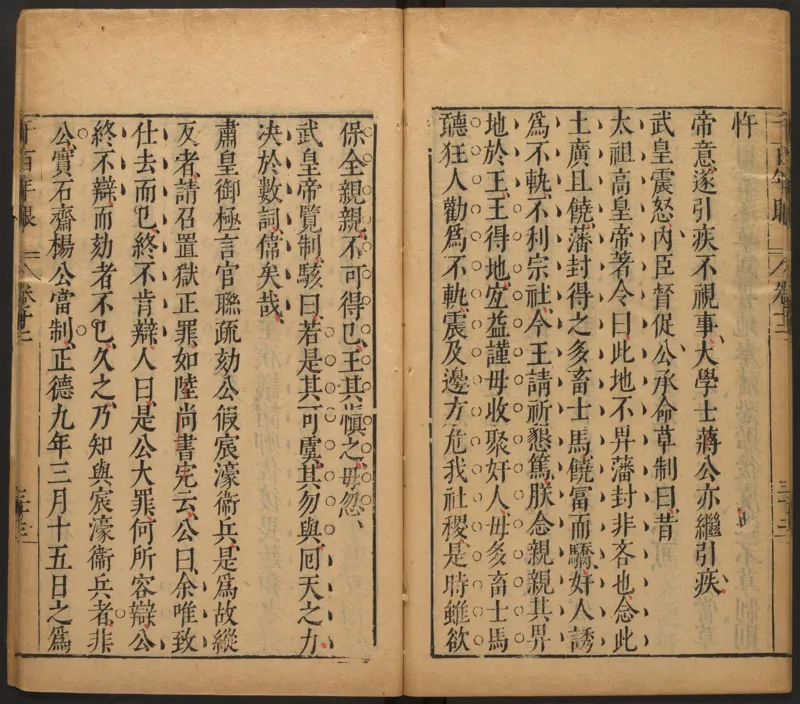 忤
帝意遂引疾不視事大學士蔣公亦繼引疾
武皇震怒內臣督促公承命草制曰昔
太祖高皇帝著令曰此地不畀藩封非吝也念此
土廣且饒藩封得之多畜士馬饒富而驕奸人誘
為不軌不利宗社今王請祈懇篤朕念親親其畀
地於王王得地宐益謹毋收聚奸人毋多畜士馬
聽狂人勸為不軌震及邊方危我社稷是時雖欲
千百年眼 卷十二
保全親親不可得巳王其愼之毋忽
武皇帝覽制駭曰若是其可虞其勿與囘天之力
决於數詞偉矣哉
肅皇御極言官聯疏劾公假宸濠衛兵是為故縱
反者請召置獄正罪如陸尚書完云公曰余唯致
仕去而巳終不肯辯人曰是公大罪何所容辯公
終不辯而劾者不巳久之乃知與宸濠衞兵者非
公實石齋楊公當制正德九年三月十五日之為
千百年眼 卷十二